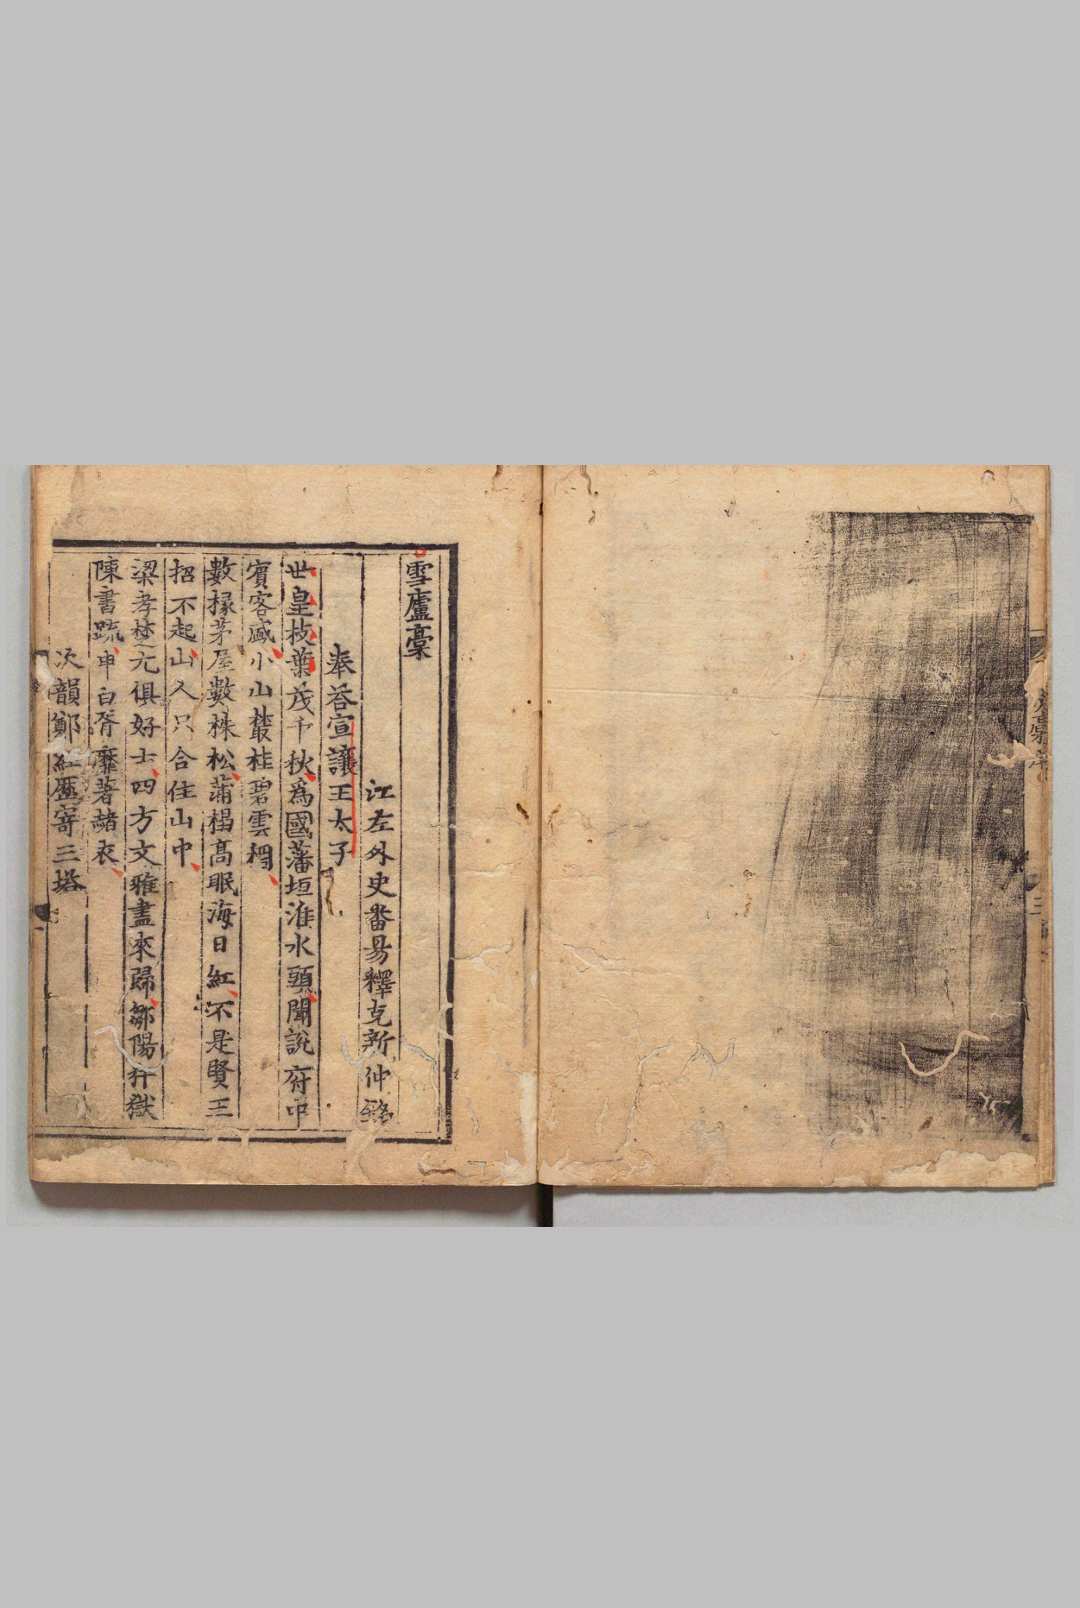 雪廬稾
江左外史番昜釋克新仲銘
奉荅宣讓王太子
世皇枝葉茂千秋爲國藩垣淮水頭聞說府中
賓客盛小山叢桂碧雲稠
數椽茅屋數株松蒲榻高眠海日紅不是賢王
招不起山人只合住山中
梁孝楚元俱好士四方文雅盡來歸鄒陽弃獄
陳書疏申白胥靡著赭衣
次韻鄭紅歷寄三塔